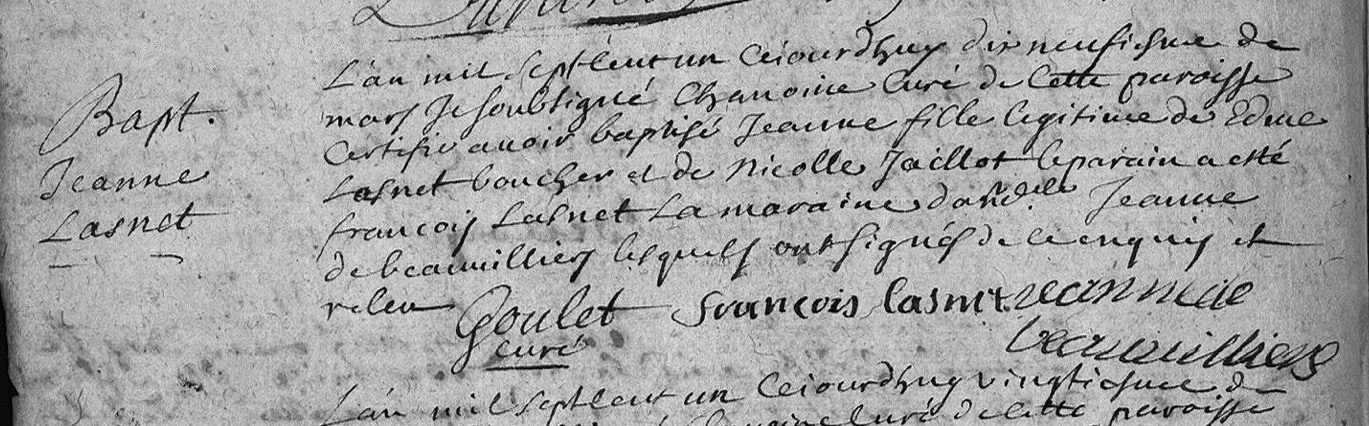 Bapt.
Jeanne
Lasnet
L'an mil sept cent un ceiourdhuy dix neufiesme de
mars Je soubsigné Chanoine Curé de cette paroisse
certifie avoir baptisé Jeanne fille legitime de Edme
Lasnet boucher et de Nicolle Jaillot le parain a esté
françois Lasnet La maraine dam.elle Jeanne
de beauvilliers lesquels ont signés de ce enquis et
Goulet
curé
françois lasnet jeanne de
beauvilliers
L'an mil sept cent un ceiourdhuy vingtiesme de
Chanoine Curé de cette paroisse